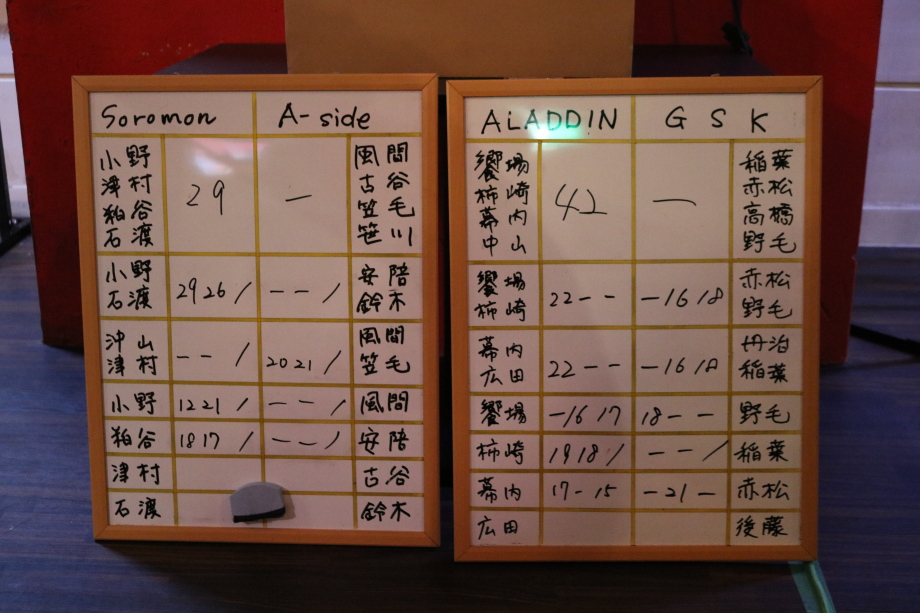 Soromon A-side
小野 風間
津村 29 — 古谷
狛谷 笠毛
石渡 笹川
小野 安陪
石渡 2926/ ---/ 鈴木
沖山 風間
津村 --/ 2021/ 笠毛
小野 1221/ --/ 風間
狛谷 1817/ --/ 安陪
津村 古谷
石渡 鈴木
ALADDIN GSK
饗場 稲葉
柿崎 42 — 赤松
幕内 高橋
中山 野毛
饗場 赤松
柿崎 22-- -1618 野毛
幕内 丹泊
広田 22-- -1618 稲葉
饗場 -1617 18-- 野毛
柿崎 1918/ --/ 稲葉
幕内 17-15 -21- 赤松
広田 後藤